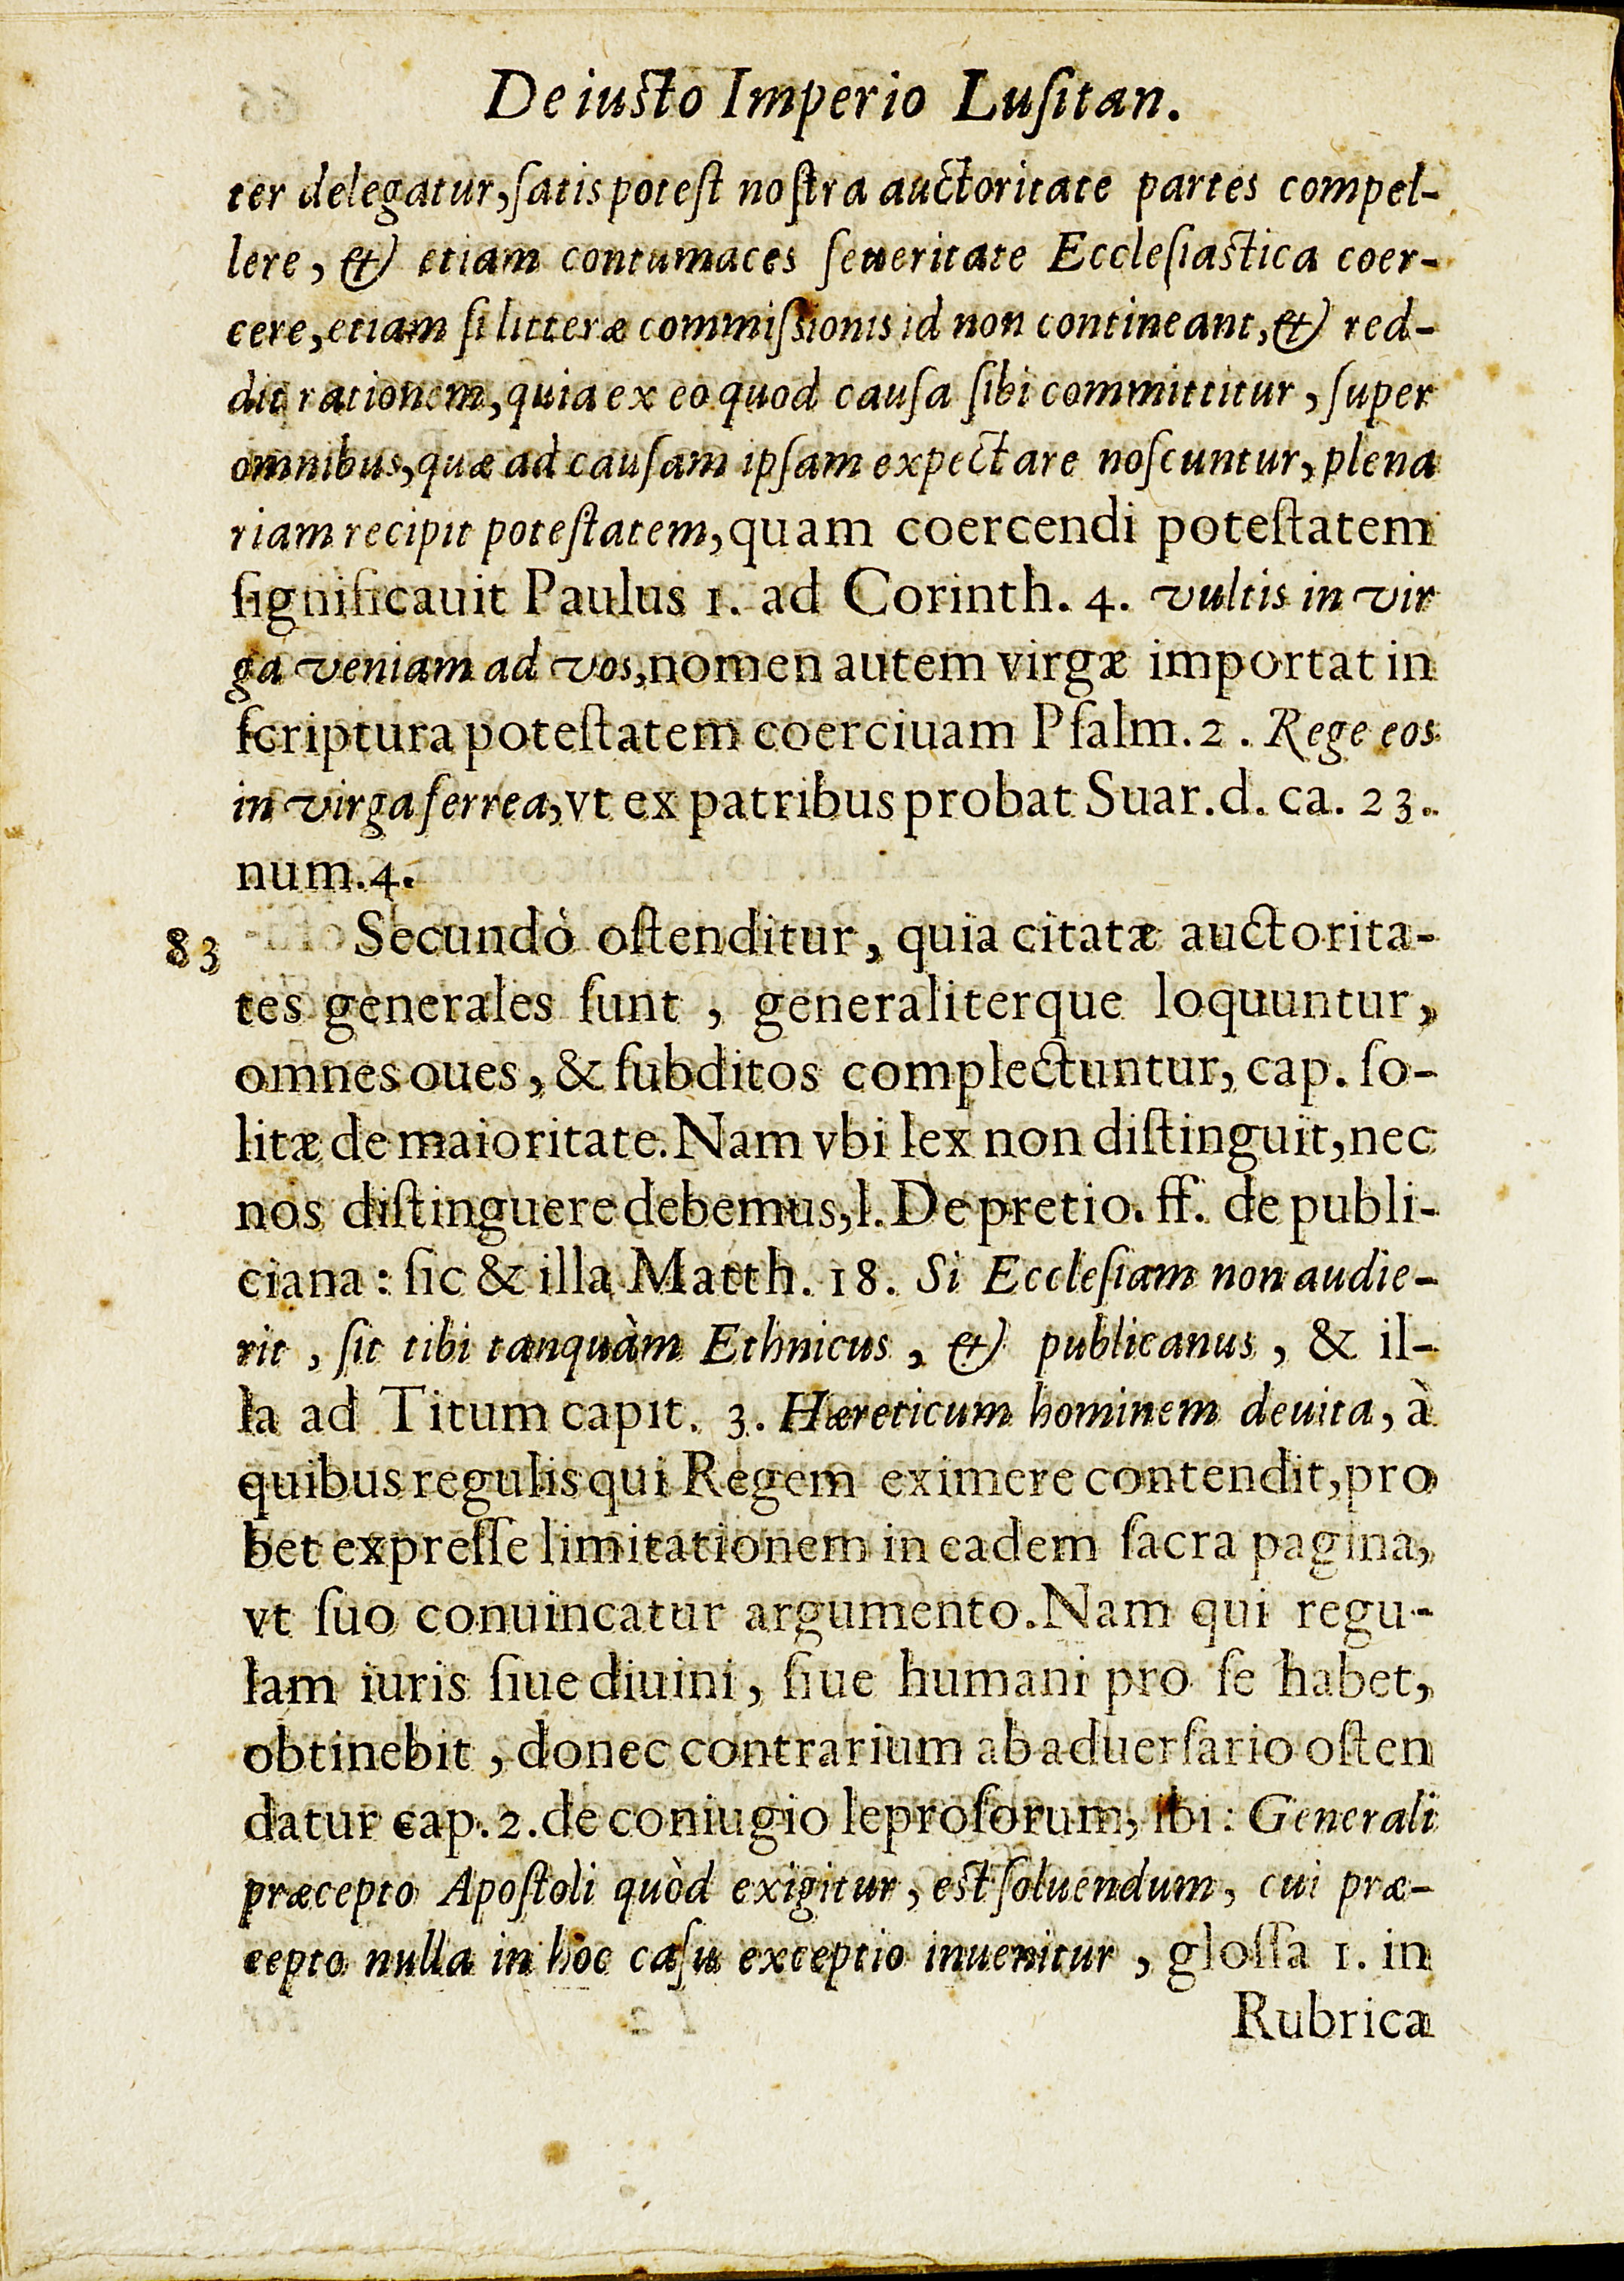 De iusto Imperio Lusitan.
ter delegatur, ſatis poteſt noſtra auctoritate partes compel-
lere, & etiam contumaces ſeueritate Eccleſiastica coer-
cere, etiam ſi litteræ commiſsionis id non contineant, & red-
dit rationem, quia ex eo quod cauſa ſibi committitur, ſuper
omnibus, quæ ad cauſam ipſam expectare noſcuntur, plena
riam recipit poteſtatem, quam coercendi poteſtatem
ſignificauit Paulus 1. ad Corinth. 4. vultis in vir
ga veniam ad vos, nomen autem virgæ importat in
ſcriptura poteſtatem coerciuam Pſalm. 2. Rege eos
in virga ferrea, vt ex patribus probat Suar. d. ca. 23.
num. 4.
83 Secundò oſtenditur, quia citatæ auctorita-
tes generales ſunt, generaliterque loquuntur,
omnes oues, & ſubditos complectuntur, cap. ſo-
litæ de maioritate. Nam vbi lex non diſtinguit, nec
nos diſtinguere debemus, l. De pretio. ff. de publi-
ciana: ſic & illa Matth. 18. Si Eccleſiam non audie-
rit, ſit tibi tanquàm Ethnicus, & publicanus, & il-
la ad Titum capit. 3. Hæreticum hominem deuita, à
quibus regulis qui Regem eximere contendit, pro
bet expreſſe limitationem in eadem ſacra pagina,
vt ſuo conuincatur argumento. Nam qui regu-
lam iuris ſiue diuini, ſiue humani pro ſe habet,
obtinebit, donec contrarium ab aduerſario oſten
datur cap. 2. de coniugio leproſorum, ibi: Generali
præcepto Apoſtoli quòd exigitur, est ſoluendum, cui præ-
cepto nulla in hoc caſu exceptio inuenitur, gloſſa 1. in
Rubrica